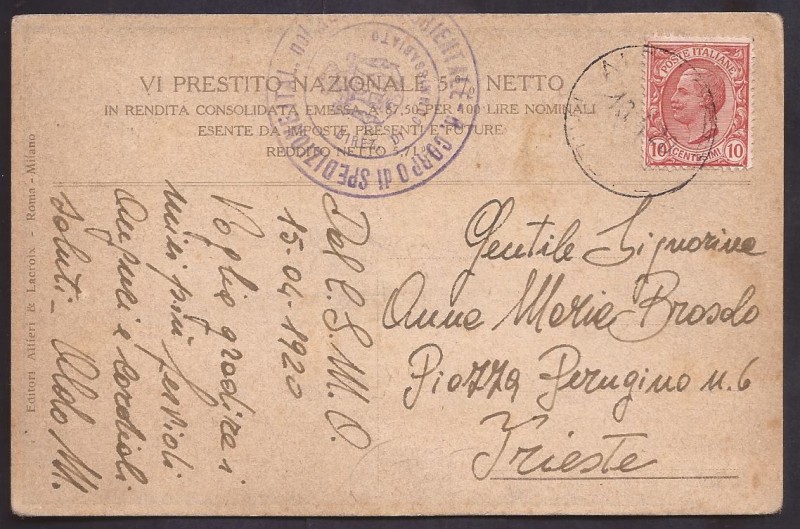 VI PRESTITO NAZIONALE 5% NETTO
IN RENDITA CONSOLIDATA EMESSA A 87,50 PER 100 LIRE NOMINALI
ESENTE DA IMPOSTE PRESENTI E FUTURE
REDDITO NETTO 5,71%
CORPO di SPEDIZIONE
POSTE ITALIANE
10 CENTESIMI 10
Editori Alfieri & Lacroix - Roma - Milano
Dal C.S.M.O.
15-04-1920
Voglia gradire i
miei più fervidi
Auguri e cordiali
saluti - Aldo M.
Gentile Signorina
Anna Maria Brosolo
Piazza Perugino n. 6
Trieste